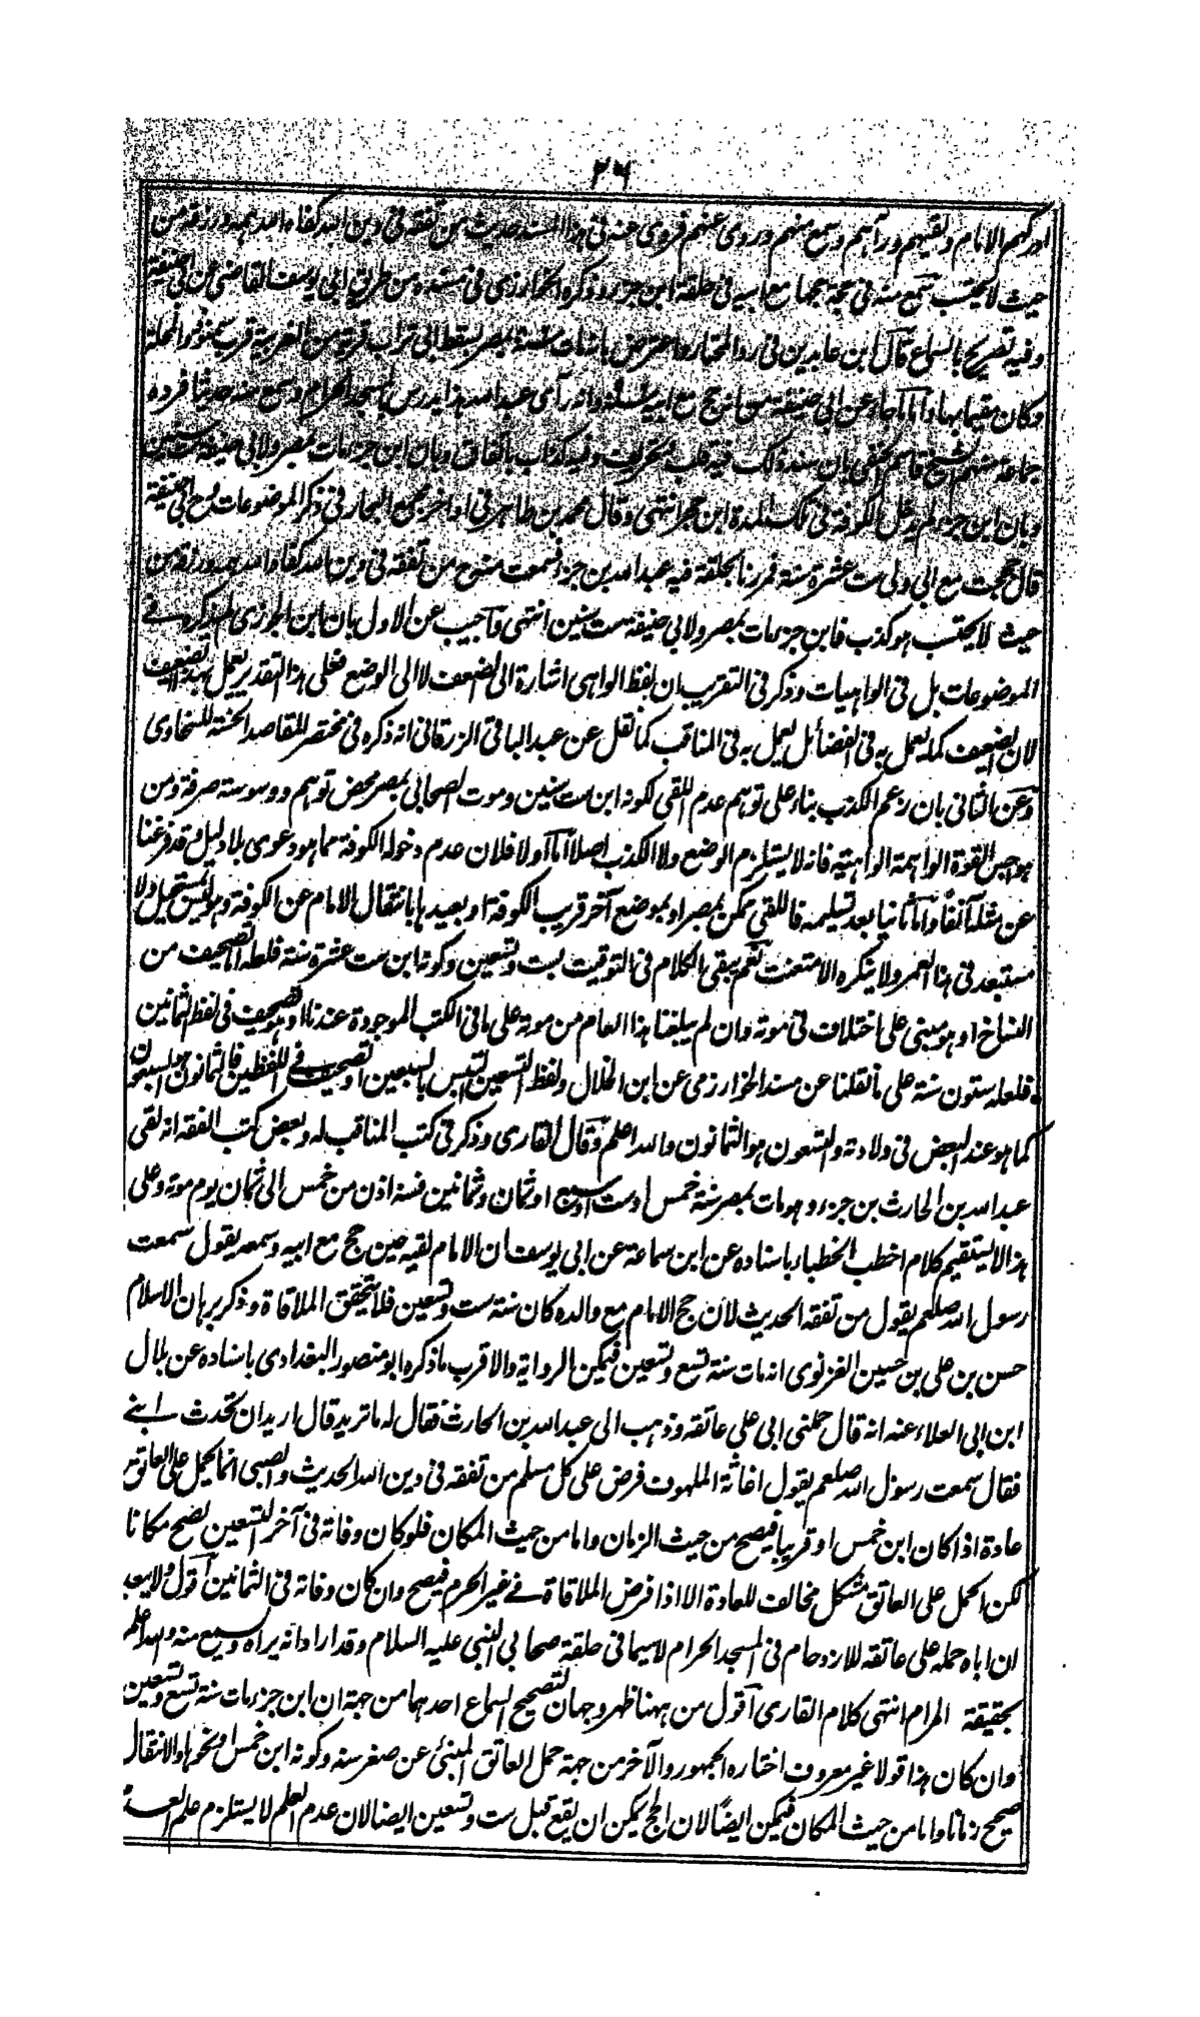 ٢٦
ادركهم الامام ولقيهم ورآهم وسمع منهم وروى عنهم فروى عنه فى هذا المسند حديث من تفقه فى دين الله كفاه الله همه ورزقه من
حيث لا يحتسب سمع منه فى حجة حجها مع ابيه فى حلقة ابن جزء وذكره الخوارزمى فى مسنده من طريق ابى يوسف القاضى عن ابى حنيفة
وفيه تصريح بالسماع قال ابن عابدين فى رد المحتار واعترض بانه مات سنة بمصر بسقط ابى تراب قرية من الغربية قرب سمنود والمحلة
وكان مقيما بها واما ما جاء عن ابى حنيفة من انه حج مع ابيه سنة وانه رأى عبد الله هذا يدرس بالمسجد الحرام وسمع منه حديثا فرده
جماعة منهم الشيخ قاسم الحنفى بان سند ذلك فيه قلب وتحريف وفيه كذاب باتفاق وبان ابن جزء مات بمصر ولابى حنيفة ست سنين
وبان ابن جزء لم يدخل الكوفة فى تلك المدة ابن حجر انتهى وقال محمد بن طاهر فى اواخر مجمع البحار فى ذكر الموضوعات لمدح ابى حنيفة
قال حججت مع ابى ولى ست عشرة سنة فمررنا بحلقة فيه عبد الله بن جزء فسمعت منه من تفقه فى دين الله كفاه الله همه ورزقه من
حيث لا يحتسب هو كذب فابن جزء مات بمصر ولابى حنيفة ست سنين انتهى فاجيب عن الاول بان ابن الجوزى لم يذكره فى
الموضوعات بل فى الواهيات وذكر فى التقريب ان لفظ الواهى اشارة الى الضعف لا الى الوضع فعلى هذا التقدير يعمل بهذا الضعيف
لان الضعيف كما يعمل به فى الفضائل يعمل به فى المناقب كما نقل عن عبد الباقى الزرقانى انه ذكره فى مختصر المقاصد الحسنة للسخاوى
وعن الثانى بان زعم الكذب بناء على توهم عدم اللقى لكونه ابن ست سنين وموت الصحابى بمصر محض توهم ووسوسة صرفة ومن
هواجس القوة الواهمة الواهية فانه لا يستلزم الوضع ولا الكذب اصلا اما اولا فلان عدم دخوله الكوفة مما هو دعوى بلا دليل وقد فرغنا
عن مثله آنفا واما ثانيا بعد تسليمه فاللقى ممكن بمصر او بموضع آخر قريب الكوفة او بعيدها بانتقال الامام عن الكوفة وهو ليس بمستحيل ولا
مستبعد فى هذا العمر ولا ينكره الا متعنت نعم يبقى الكلام فى التوقيت بست وتسعين وكونه ابن ست عشرة سنة فلعله التصحيف من
النساخ او هو مبنى على اختلاف فى موته وان لم يبلغنا هذا العام من موته على ما فى الكتب الموجودة عندنا او هو تصحيف فى لفظ الثمانين
فلعله ستون سنة على ما نقلنا عن مسند الخوارزمى عن ابن الخلال ولفظ التسعين التبس بالسبعين او تصحيف فى اللفظين فالثمانون هو السبعون
كما هو عند البعض فى ولادته والتسعون هو الثمانون والله اعلم وقال القارى وذكر فى كتب المناقب له وبعض كتب الفقه انه لقى
عبد الله بن الحارث بن جزء وهو مات بمصر سنة خمس او ست او سبع او ثمان وثمانين فسنه اذن من خمس الى ثمان يوم موته وعلى
هذا لا يستقيم كلام اخطب الخطباء باسناده عن ابن سماعة عن ابى يوسف ان الامام لقيه حين حج مع ابيه وسمعه يقول سمعت
رسول الله صلعم يقول من تفقه الحديث لان حج الامام مع والده كان سنة ست وتسعين فلا يتحقق الملاقاة وذكر برهان الاسلام
حسن بن على بن حسين الغزنوى انه مات سنة تسع وتسعين فيمكن الرواية والاقرب ما ذكره ابو منصور البغدادى باسناده عن بلال
ابن ابى العلاء عنه انه قال حملنى ابى على عاتقه وذهب الى عبد الله بن الحارث فقال له ما تريد قال اريد ان تحدث ابنى
فقال سمعت رسول الله صلعم يقول اغاثة الملهوف فرض على كل مسلم من تفقه فى دين الله الحديث والصبى انما يحمل على العاتق
عادة اذا كان ابن خمس او قريبا فيصح من حيث الزمان واما من حيث المكان فلو كان وفاته فى آخر التسعين لصح مكانا
لكن الحمل على العاتق مشكل مخالف للعادة الا اذا فرض الملاقاة فى غير الحرم فيصح وان كان وفاته فى الثمانين اقول ولا يبعد
ان اباه حمله على عاتقه للازدحام فى المسجد الحرام لاسيما فى حلقة صحابى النبى عليه السلام وقد اراد انه يراه ويسمع منه والله اعلم
بحقيقة المرام انتهى كلام القارى اقول من ههنا ظهر وجهان لتصحيح السماع احدهما من جهة ان ابن جزء مات سنة تسع وتسعين
وان كان هذا قولا غير معروف اختاره الجمهور والآخر من جهة حمل العاتق المبنى عن صغر سنه وكونه ابن خمس او نحوها والانتقال
صحيح زمانا واما من حيث المكان فيمكن ايضا لان الحج يمكن ان يقع قبل ست وتسعين ايضا لان عدم العلم لا يستلزم علم العدم